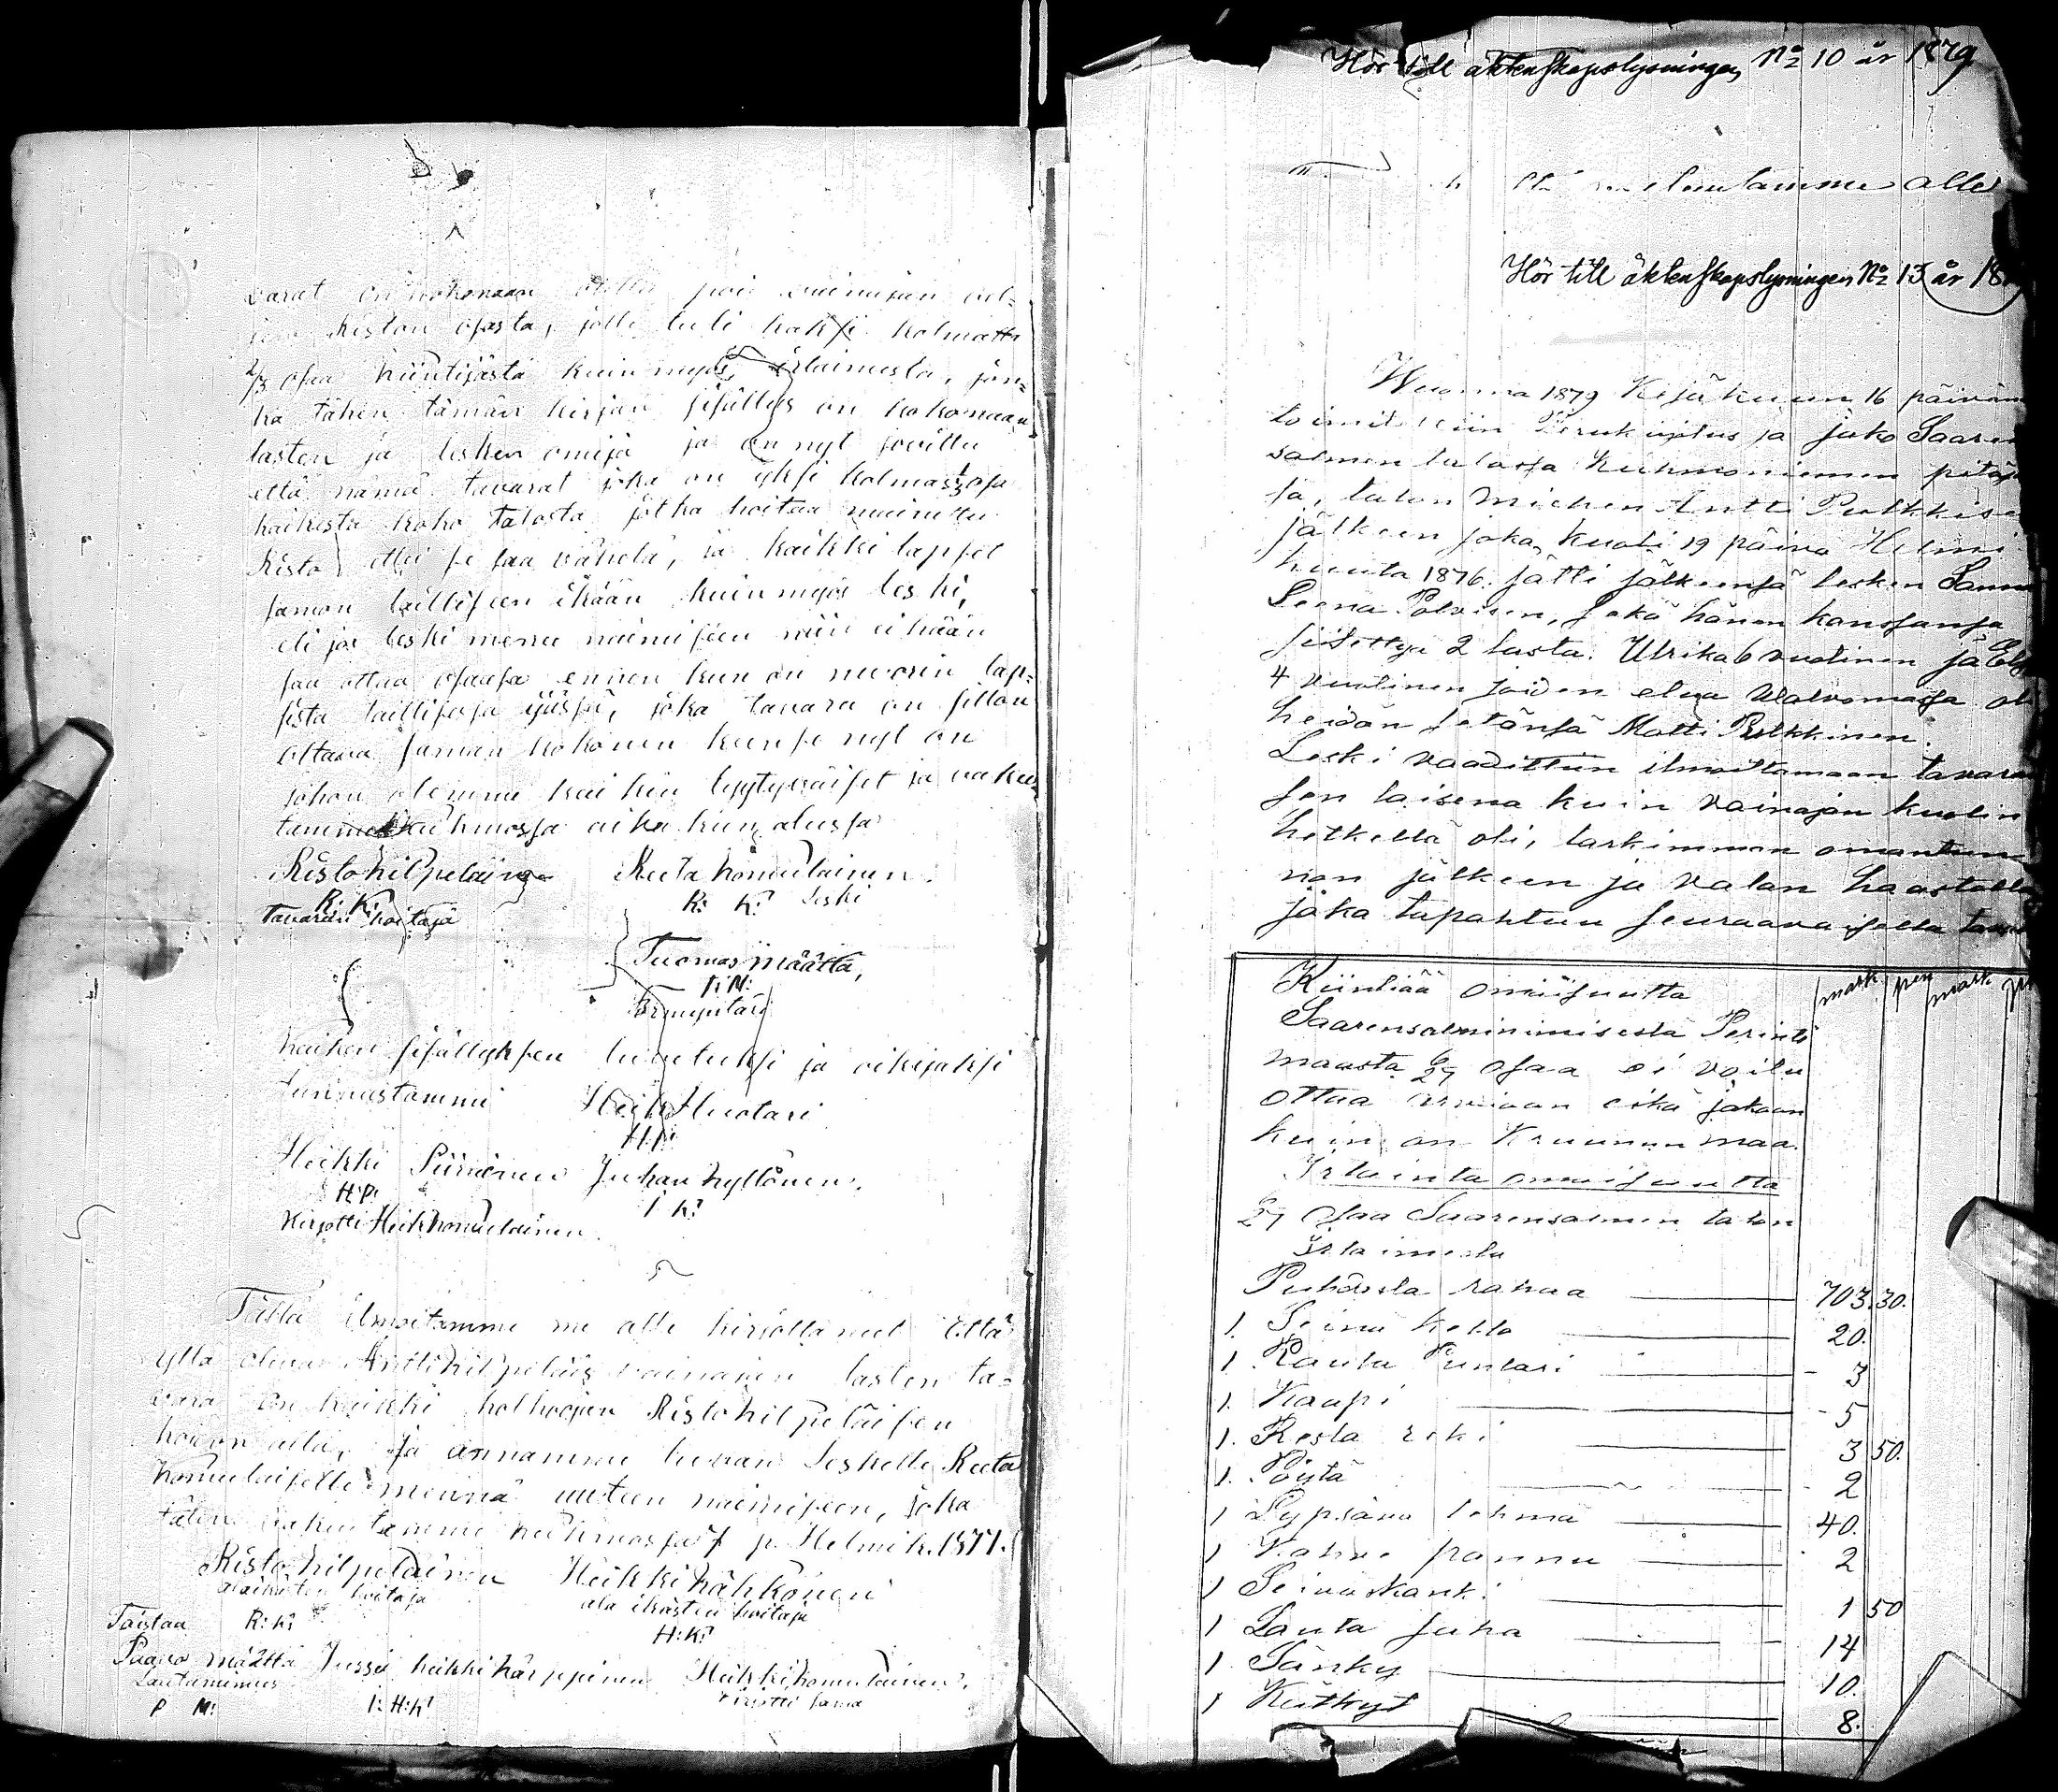 varat on kokonaan pois vainajan vel-
jen Riston osasta, jolle tuli kaksi kolmatta
2/3 osaa kiintijästä kuin myös irtaimesta, jon-
ka tähen tämän kirjan sisällys on kokonaan
lasten ja lesken omija ja on nyt sovittu
että nämä tavarat joka on yksi kolmas 1/3 osa
kaikesta koko talosta jotka hoitaa mainittu
Risto ettei se saa vähetä, ja kaikki lapset
saman lailliseen ikään kuin myös leski,
eli jos leski menee naimiseen niin ei hään
saa ottaa osaasa ennen kun on nuorin lap-
sista laillisesa ijässä, joka tavara on silloin
ottava saman kokonen kun se nyt on
johon olemme kaikin tyytyväiset ja vakuu
tamme Kuhmossa aika kun alussa
Risto Kilpeläinen Reeta Komulainen.
R. K. R: K: Leski
tavaran hoitaja
Tuomas Määttä,
T: M:
Kaiken sisällyksen luvetuksi ja oikijaksi
tunnustamme Heik Huotari
Heikki Piirainen Juhan Kyllönen.
H:P: I K:
Kirjotti Heik Komulainen.
Tällä ilmoitamme me alle kirjottaneet että
yllä oleva Antti Kilpeläis vainajan lasten ta-
vara on kaikki holhoojan Risto Kilpeläisen
hoidon alla, Ja annamme luvan Leskelle Reeta
Komulaiselle mennä uuteen naimiseen, joka
täten vakuutamme Kuhmossa 7 p. Helmik. 1877.
Risto Kilpeläinen Heikki Kähkönen
alaikäisten hoitaja ala ikästen hoitaja
Toistaa R: K: H: K:
Paavo Määttä Jussi Heikki Kärppinen Heikki Komulainen.
Lautamies kirjotti sama
P M: I: H: K:
Hör till äktenskapslysningen No 10 år 1879
alle
Hör till äktenskapslysningen No 13 år 18
Wuonna 1879 Kesäkuun 16 päivän
toimitettiin Perukirjotus ja jako Saaren
salmen talossa Kuhmoniemen pitäjä
sä, talon miehen Antti Pulkkise
jälkeen joka kuoli 19 päivä Helmi
kuuta 1876. Jätti jälkeensä lesken Sanna
Leena Polvisen, sekä hänen kanssansa
siitettyä 2 lasta. Ulrika 6 vuotinen ja
4 vuotinen joiden etua valvomassa oli
heidän setänsä Matti Pulkkinen.
Leski vaadittiin ilmoittamaan tavara
sen laisena kuin vainajan kuolin
hetkellä oli, tarkimman omantun
non jälkeen ja valan haastolla
joka tapahtuu seuraavaisella tava
Kiintiää omaisuutta mark pen mark
Saarensalmi nimisestä Perintö
maasta 6/27 osaa ei voitu
ottaa arvioon eikä jakoon
kuin on Kruunun maa.
Irtainta omaisuutta
6/27 osaa Saarensalmen talon
irtaimesta
Puhdasta rahaa 703. 30.
1. Seinä kello 20.
1 Rauta Puntari 3
1. Kaapi 5
1. Resla reki 3 50.
1. Pöytä 2
1 Lypsävä lehmä 40.
1 Kahvi pannu 2
1 Seiväskanki 1 50
1 Lauta suha 14
1 Sänky 10.
1 Kätkyt 8.